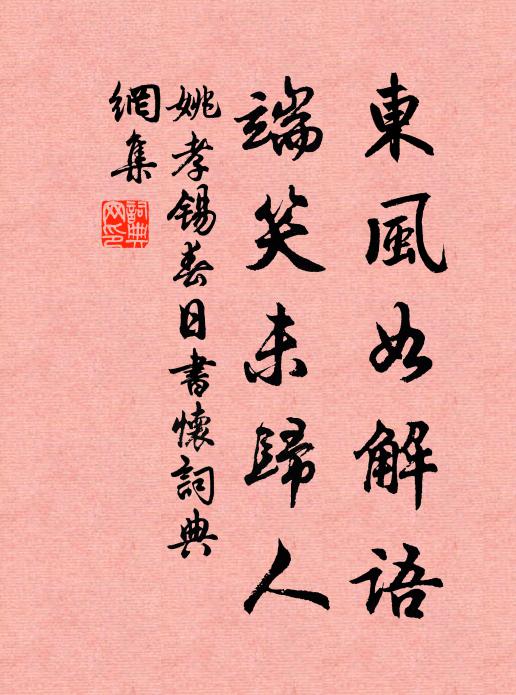 東風如解語
端笑未歸人
姚孝錫春日書懷詞典
網集
詞典
网印